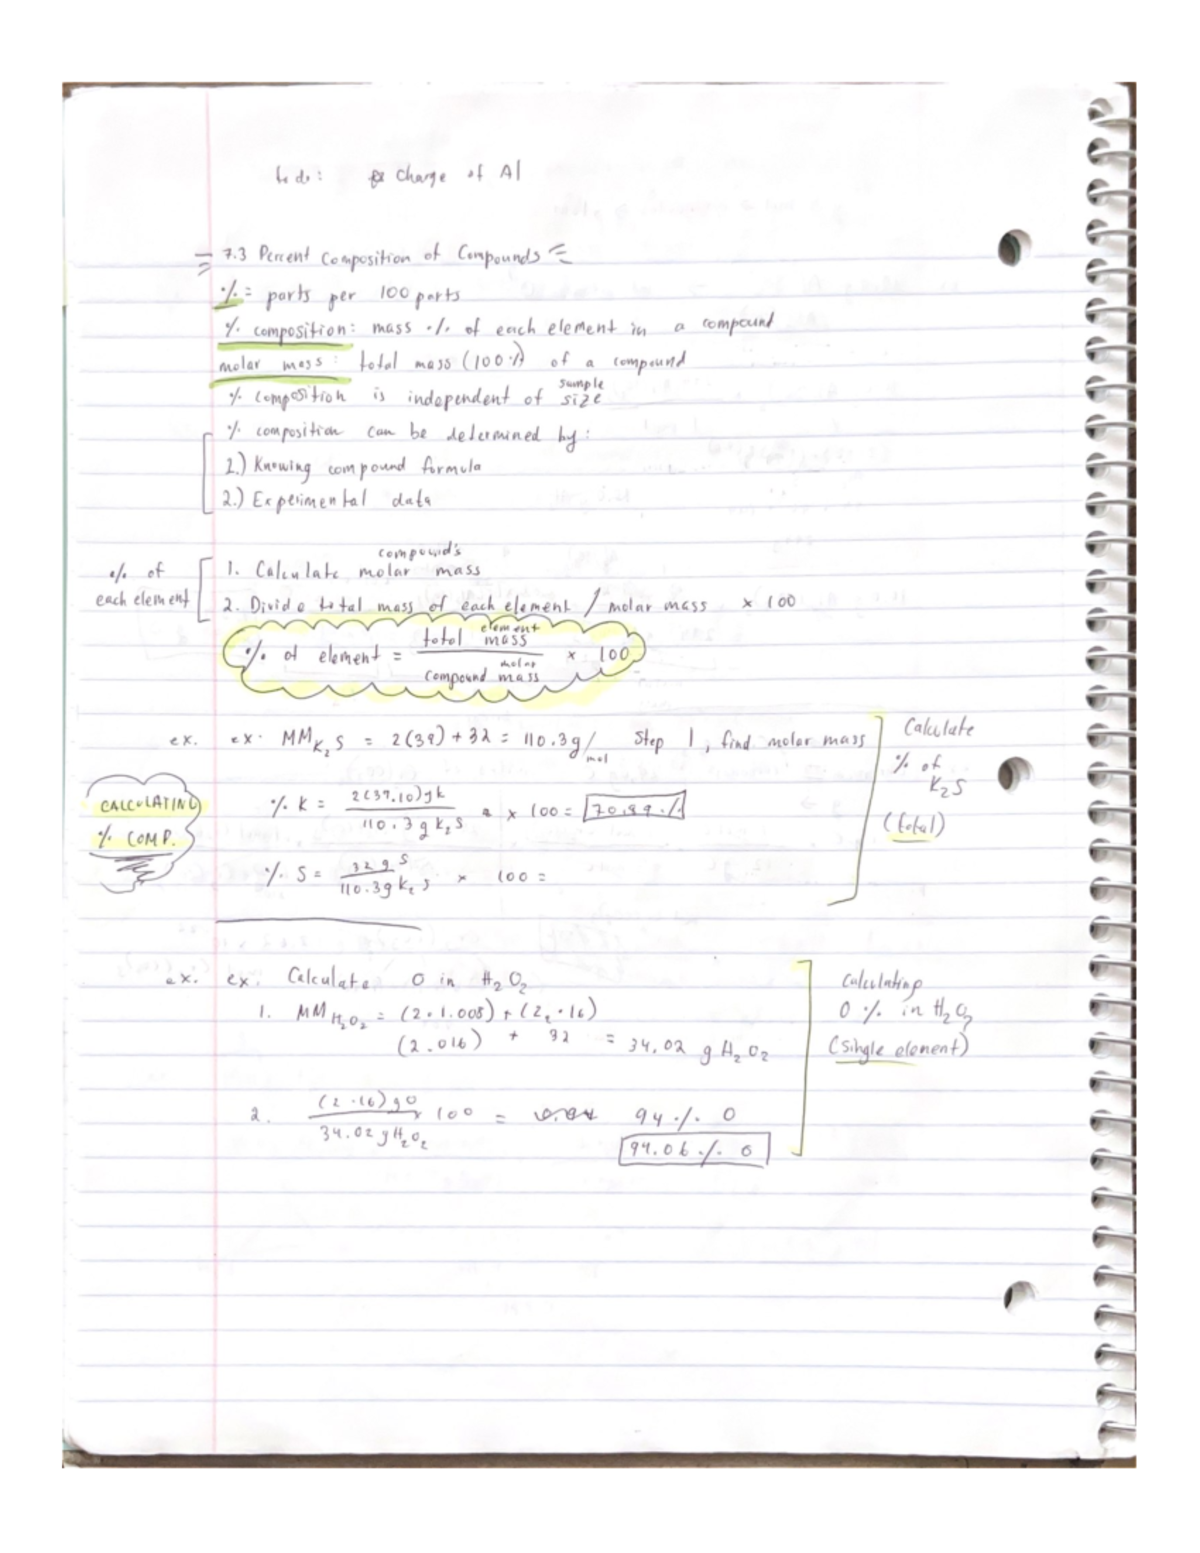 to do: Charge of Al
7.3 Percent Composition of Compounds
% = parts per 100 parts
% composition: mass % of each element in a compound
molar mass: total mass (100%) of a compound
% composition is independent of sample size
% composition can be determined by:
1.) Knowing compound formula
2.) Experimental data
% of each element
1. Calculate compound's molar mass
2. Divide total mass of each element / molar mass × 100
% of element = total element mass / compound molar mass × 100
ex. ex. MM K₂S = 2(39) + 32 = 110.3g/mol Step 1, find molar mass
Calculate
% of
K₂S
(total)
CALCULATING
% COMP.
% K = 2(39.10)gK / 110.3 g K₂S × 100 = 70.89%
% S = 32 g S / 110.3g K₂S × 100 =
ex. ex. Calculate O in H₂O₂
1. MM H₂O₂ = (2·1.008) + (2·16)
(2.016) + 32 = 34.02 g H₂O₂
Calculating
O % in H₂O₂
(single element)
2. (2·16)gO / 34.02 gH₂O₂ × 100 = 94% O
94.06% O